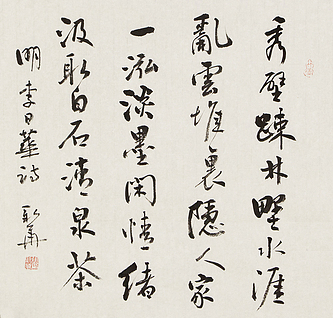 秀壁踈林野水涯
亂雲堆裏隱人家
一泓淡墨閑情緒
汲取白石清泉茶
明李日華詩